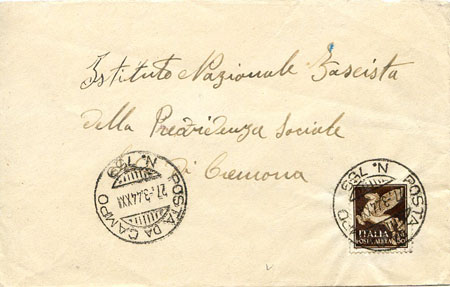 Istituto Nazionale Fascista
della Previdenza Sociale
di Cremona
POSTA DA CAMPO
N. 
27-3.44.XXII
POSTA
PO N.
ITALIA
POSTA AEREA 50